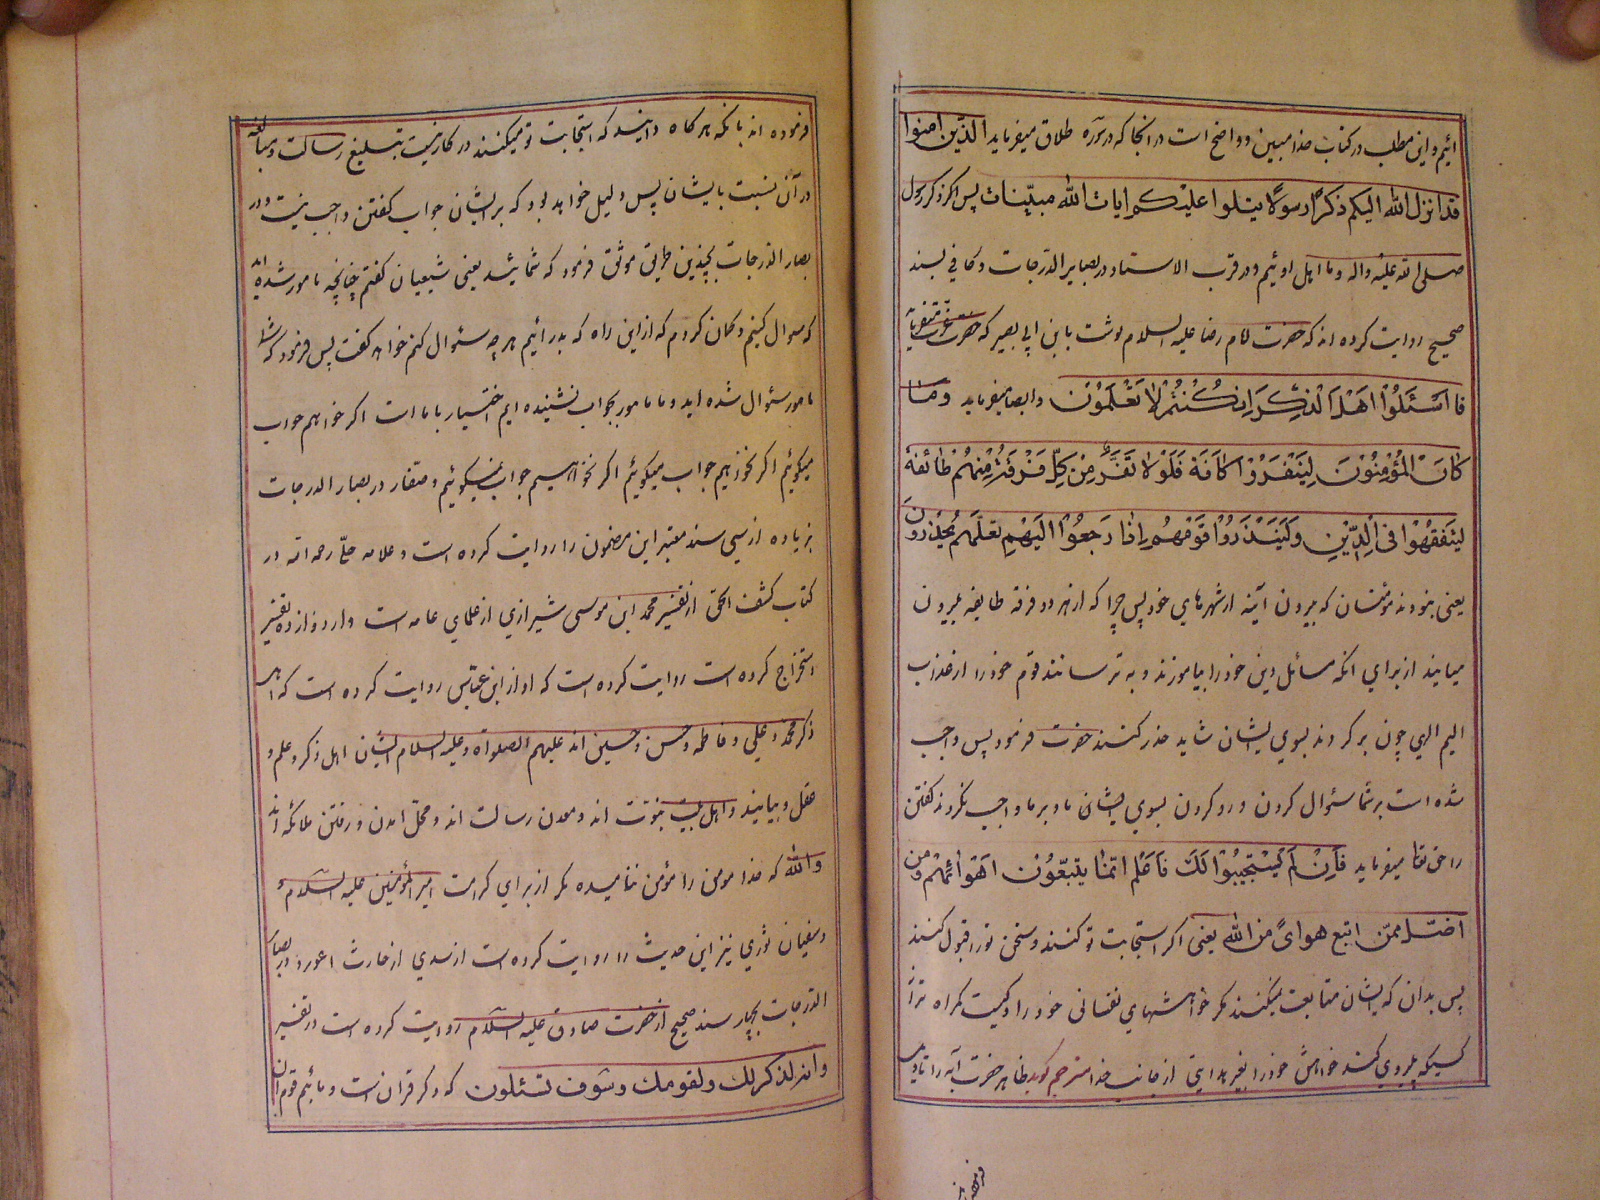 ائیم و این مطلب در کتاب خدا مبین و واضح است در انجا که در سوره طلاق میفرماید الذین امنوا
قد انزل الله الیکم ذکرا رسولا یتلوا علیکم ایات الله مبینات پس ذکر رسول
صلی الله علیه واله و ما اهل اوئیم و در قرب الاسناد و در بصایر الدرجات و کافی بسند
صحیح روایت کرده اند که حضرت امام رضا علیه السلام نوشت باین ابی بصیر که
فاسئلوا اهل الذکر ان کنتم لا تعلمون و ایضا میفرماید وما
کان المؤمنون لینفروا کافة فلولا نفر من کل فرقة منهم طائفة
لیتفقهوا فی الدین ولینذروا قومهم اذا رجعوا الیهم لعلهم یحذرون
یعنی نبودند مؤمنان که بیرون آیند از شهرهای خود پس چرا که از هر دو فرقه طایفه بیرون
میایند از برای انکه مسائل دین خود را بیاموزند و به ترسانند قوم خود را از عذاب
الیم الهی چون بر کردند بسوی ایشان شاید حذر کنند حضرت فرمود پس واجب
شده است بر شما سئوال کردن و رو کردن بسوی ایشان ما و بر ما واجب نکردند کفتن
را حق تعا میفرماید فان لم یستجیبوا لک فاعلم انما یتبعون اهوائهم ومن
اضل ممن اتبع هواه من الله یعنی اکر استجابت تو کنند و سخن تو را قبول کنند
پس بدان که ایشان متابعت نمیکنند مکر خواهشهای نفسانی خود را و کیست کمراه تر از
کسیکه پیروی کند خواهش خود را بغیر هدایتی از جانب خدا مترجم کوید ظاهر حضرت آیه را
فرموده اند بانکه هر کاه دانند که استجابت تو نمیکنند در کار نیست تبلیغ رسالت و مبالغه
در آن نسبت بایشان پس دلیل خواهد بود که بر ایشان جواب کفتن واجب نیست و در
بصایر الدرجات بچندین طریق موثق فرمود که شمایید یعنی شیعیان کفتم چنانچه مامور شده اند
که سوال کنیم و کمان کردم که از این راه که بدر ائیم هر چه سئوال کنم خواهد کفت پس فرمود که شما
مامور سئوال شده اید و ما مامور بجواب نشنیده ایم اختیار با ما است اکر خواهیم جواب
میکوئیم اکر نخواهیم جواب نمیکوئیم و صفار در بصایر الدرجات
بزیاده از سی سند معتبر این مضمون را روایت کرده است و علامه حلی رحمه الله در
کتاب کشف الحق از تفسیر محمد ابن موسی شیرازی از علمای عامه است و از دوازده تفسیر
استخراج کرده است روایت کرده است که او از ابن عباس روایت کرده است که اهل
ذکر محمد و علی و فاطمه و حسن و حسین اند علیهم الصلواة و علیه السلام ایشان اهل ذکر و علم و
عقل و بیانند و اهل بیت نبوت اند و معدن رسالت اند و محل امدن و رفتن ملائکه اند
والله که خدا مومن را مؤمن ننامیده مکر از برای کرامت امیر المؤمنین علیه السلام
و سفیان ثوری نیز این حدیث را روایت کرده است از سدی از حارث اعور و در بصایر
الدرجات بچهار سند صحیح از حضرت صادق علیه السلام روایت کرده است در تفسیر
وانه لذکر لك ولقومك وسوف تسئلون که ذکر قران است و مائیم قوم ان